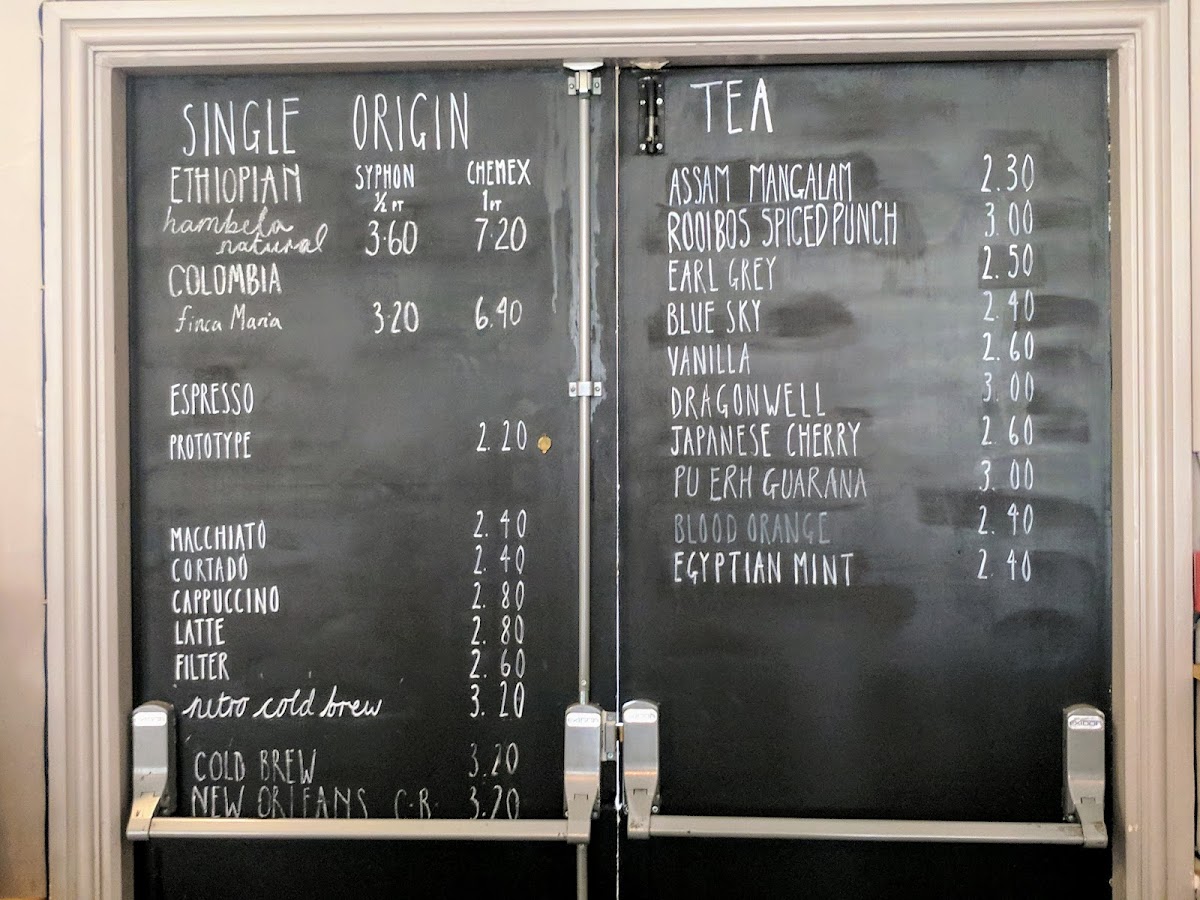 SINGLE ORIGIN
ETHIOPIAN SYPHON CHEMEX
½ PT 1 PT
hambela
natural 3.60 7.20
COLOMBIA
finca Maria 3.20 6.40
ESPRESSO
PROTOTYPE 2.20
MACCHIATO 2.40
CORTADO 2.40
CAPPUCCINO 2.80
LATTE 2.80
FILTER 2.60
nitro cold brew 3.20
COLD BREW 3.20
NEW ORLEANS C.B. 3.20
TEA
ASSAM MANGALAM 2.30
ROOIBOS SPICED PUNCH 3.00
EARL GREY 2.50
BLUE SKY 2.40
VANILLA 2.60
DRAGONWELL 3.00
JAPANESE CHERRY 2.60
PU ERH GUARANA 3.00
BLOOD ORANGE 2.40
EGYPTIAN MINT 2.40